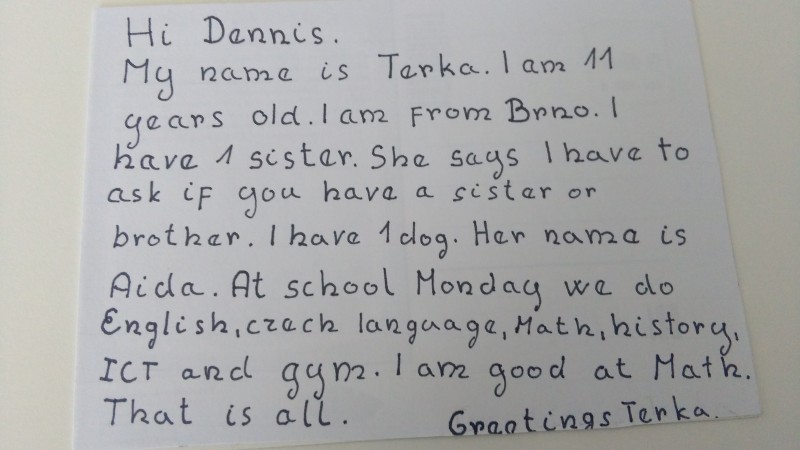 Hi Dennis.
My name is Terka. I am 11
years old. I am from Brno. I
have 1 sister. She says I have to
ask if you have a sister or
brother. I have 1 dog. Her name is
Aida. At school Monday we do
English, czech language, Math, history,
ICT and gym. I am good at Math.
That is all. Greetings Terka.